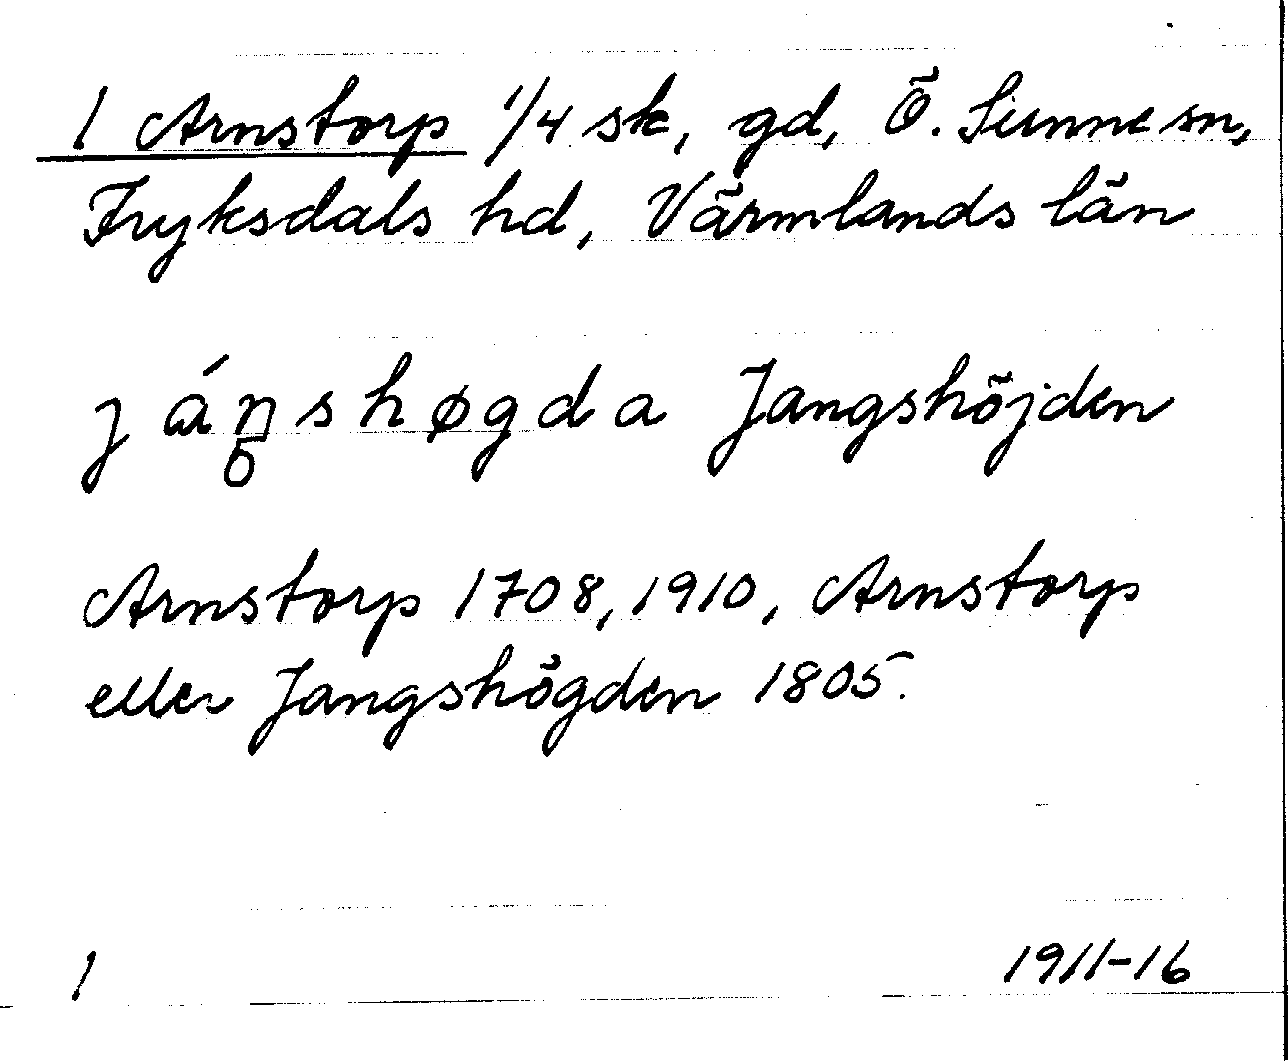 1 Arnstorp 1/4 sk, gd, Ö. Sunne sn,
Fryksdals hd, Värmlands län
j áŋ̥shøgda Jangshöjden
Arnstorp 1708, 1910, Arnstorp
eller Jangshögden 1805.
1 1911-16